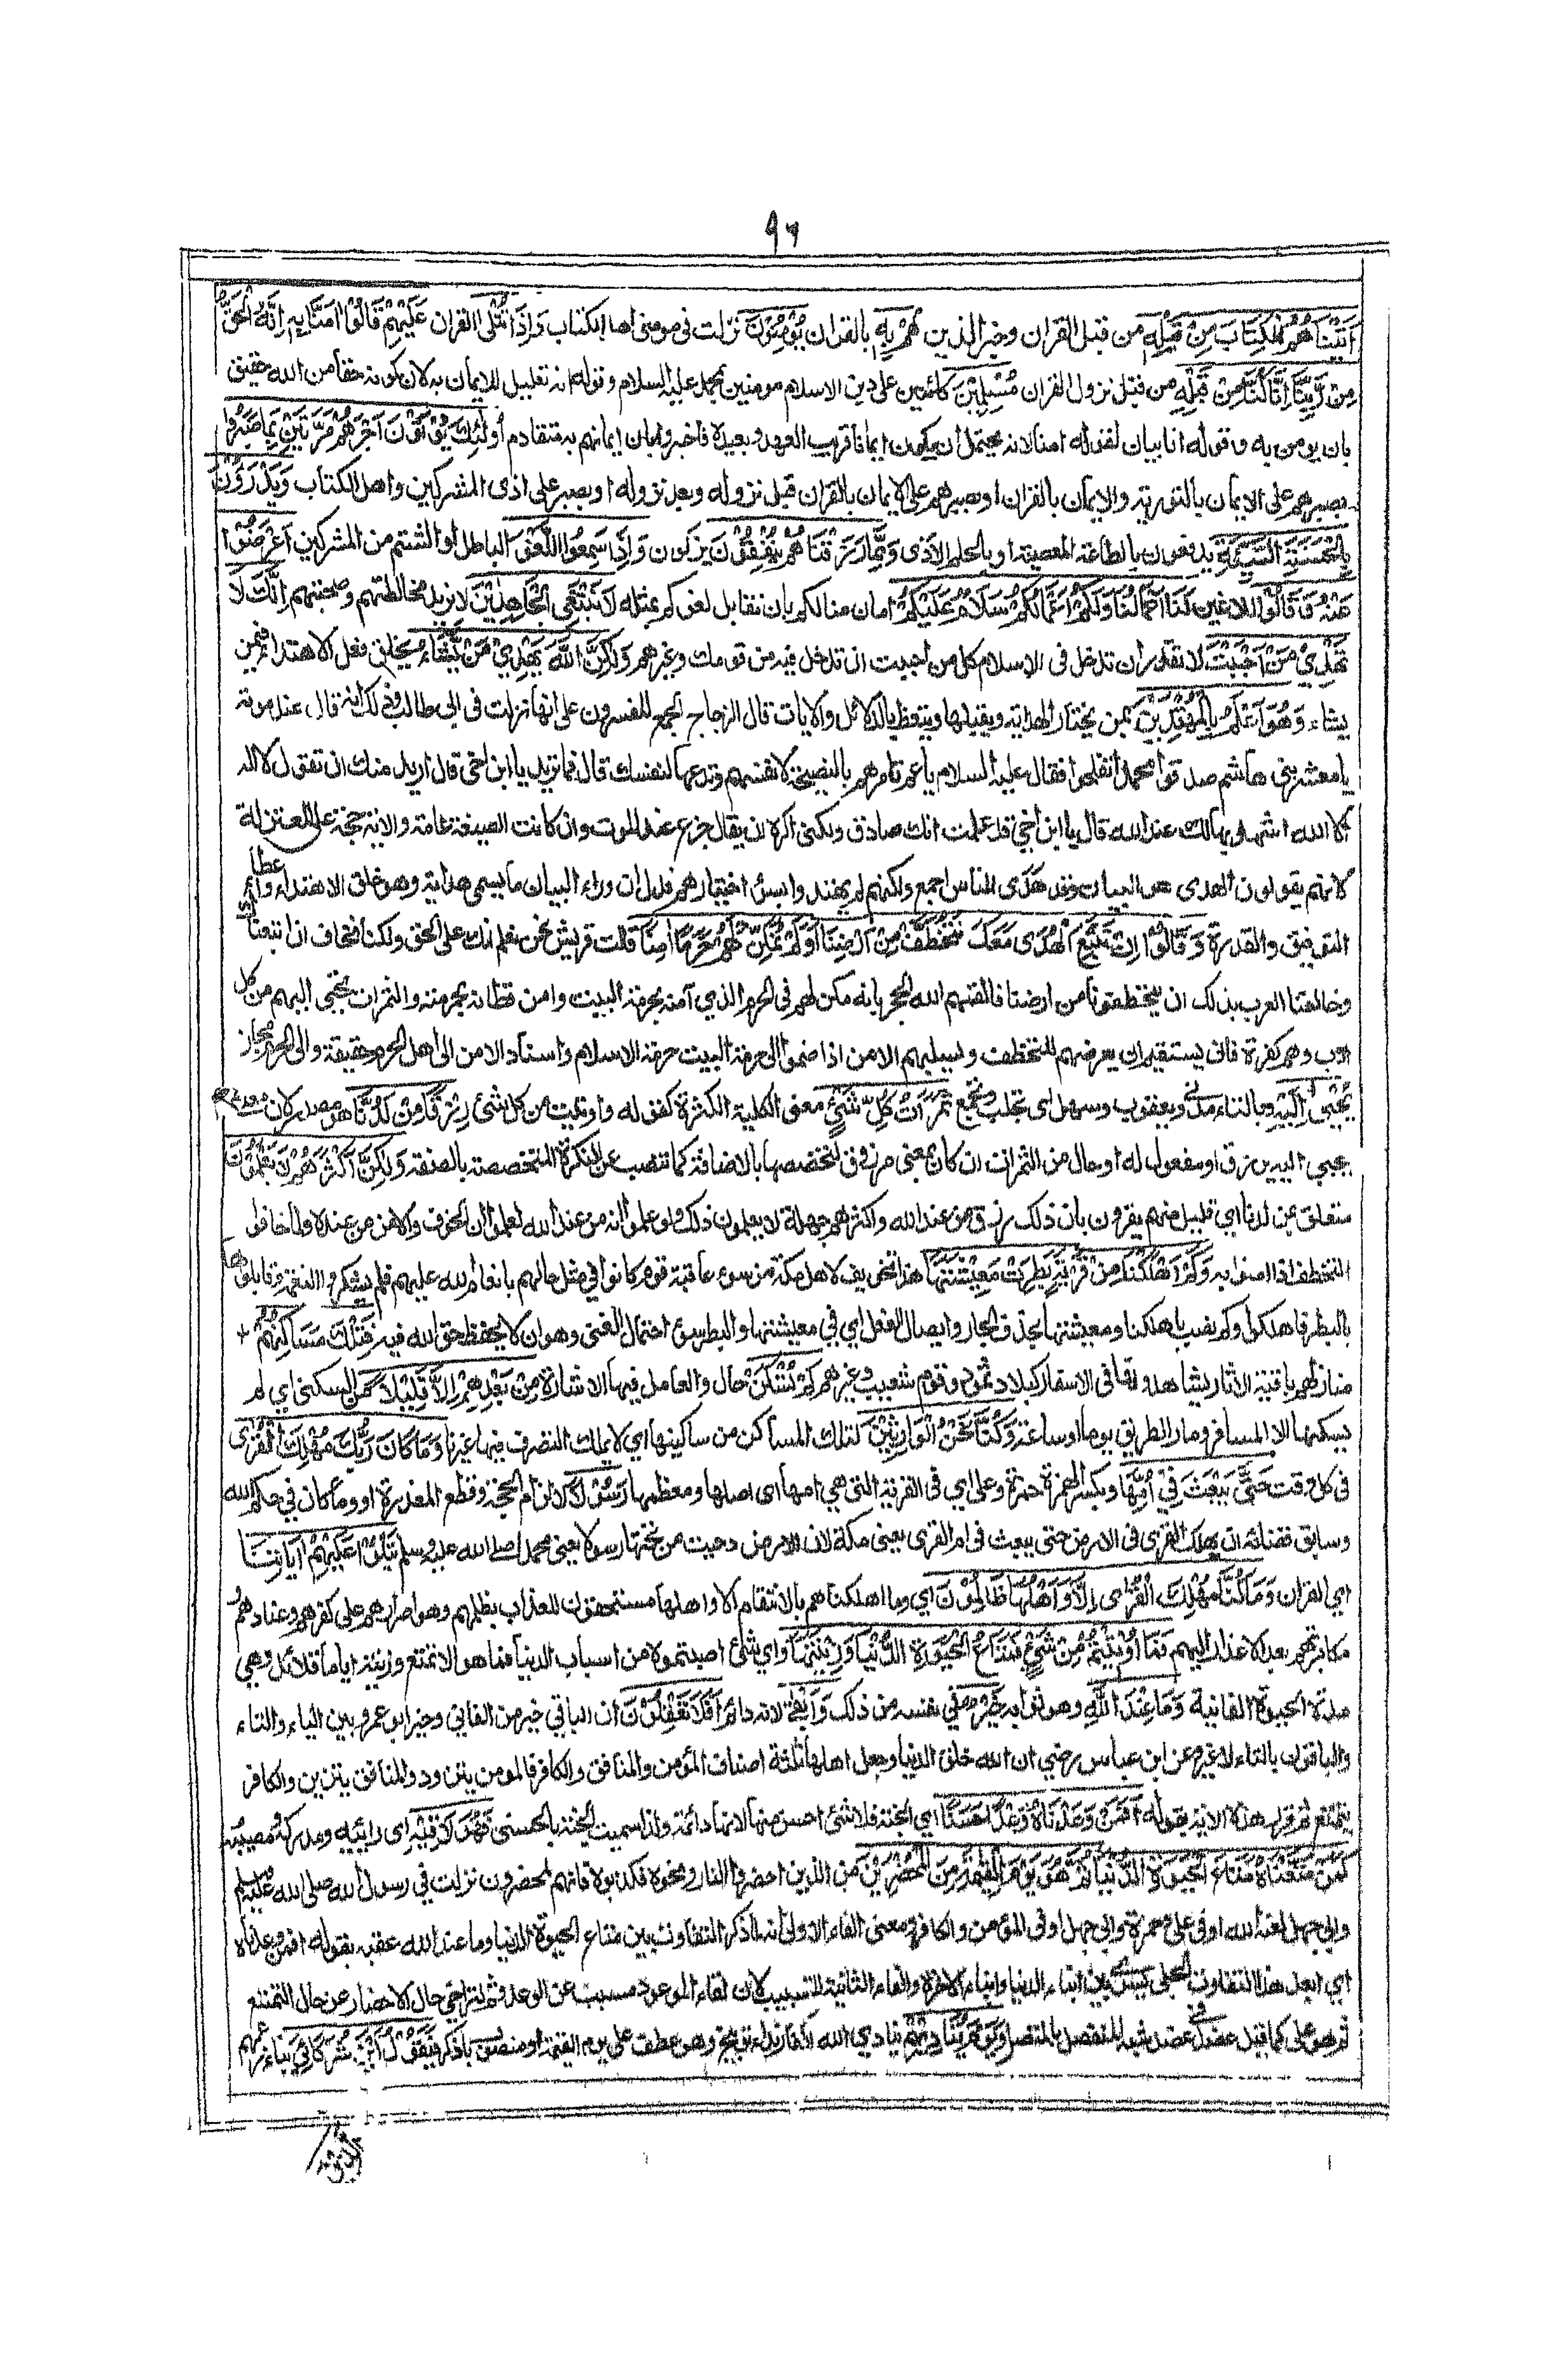 ٩٦
اٰتَيْنَاهُمُ الْكِتَابَ مِنْ قَبْلِهٖ من قبل القران وخبر الذين هُمْ بِهٖ بالقران يُؤْمِنُوْنَ نزلت في مومنى اهل الكتاب وَاِذَا يُتْلٰى القران عَلَيْهِمْ قَالُوْا اٰمَنَّا بِهٖ اِنَّهُ الْحَقُّ
مِنْ رَّبِّنَا اِنَّا كُنَّا مِنْ قَبْلِهٖ من قبل نزول القران مُسْلِمِيْنَ كائنين على دين الاسلام مومنين بمحمد عليه السلام وقوله انه تعليل للايمان به لان كونه حقا من الله حقيق
بان يومن به وقوله انا بيان لقوله امنا لانه يحتمل ان يكون ايمانا قريب العهد وبعيده فاخبروا بان ايمانهم به متقادم اُولٰئِكَ يُؤْتَوْنَ اَجْرَهُمْ مَرَّتَيْنِ بِمَا صَبَرُوْا
بصبرهم على الايمان بالتورية والايمان بالقران او بصبرهم على الايمان بالقران قبل نزوله وبعد نزوله او بصبر على اذى المشركين واهل الكتاب وَيَدْرَؤُنَ
بِالْحَسَنَةِ السَّيِّئَةَ يدفعون بالطاعة المعصية او بالحلم الاذى وَمِمَّا رَزَقْنَاهُمْ يُنْفِقُوْنَ يزكون وَاِذَا سَمِعُوا اللَّغْوَ الباطل او الشتم من المشركين اَعْرَضُوْا
عَنْهُ وَقَالُوْا للاغين لَنَا اَعْمَالُنَا وَلَكُمْ اَعْمَالُكُمْ سَلَامٌ عَلَيْكُمْ امان منا لكم بان نقابل لغوكم بمثله لَا نَبْتَغِى الْجَاهِلِيْنَ لا نريد مخالطتهم وصحبتهم اِنَّكَ لَا
تَهْدِىْ مَنْ اَحْبَبْتَ لا تقدر ان تدخل فى الاسلام كل من احببت ان تدخل فيه من قومك وغيرهم وَلٰكِنَّ اللّٰهَ يَهْدِىْ مَنْ يَّشَاءُ يخلق فعل الاهتداء فيمن
يشاء وَهُوَ اَعْلَمُ بِالْمُهْتَدِيْنَ بمن يختار الهداية ويقبلها ويتعظ بالدلائل والايات قال الزجاج اجمع المفسرون على انها نزلت فى ابى طالب وذلك انه قال عند موته
يا معشر بنى هاشم صدقوا محمدا تفلحوا فقال عليه السلام يا عم تامرهم بالنصيحة لانفسهم وتدعها لنفسك قال فما تريد يا ابن اخى قال اريد منك ان تقول لا اله
الا الله اشهد لك بها عند الله قال يا ابن اخي قد علمت انك صادق ولكنى اكره ان يقال جزع عند الموت وان كانت الصيغة عامة والاية حجة على المعتزلة
لانهم يقولون الهدى هو البيان وقد هدى الناس اجمع ولكنهم لم يهتدوا بسوء اختيارهم فدل ان وراء البيان ما يسمى هداية وهو خلق الاهتداء واعطاء
التوفيق والقدرة وَقَالُوْا اِنْ نَتَّبِعِ الْهُدٰى مَعَكَ نُتَخَطَّفْ مِنْ اَرْضِنَا اَوَلَمْ نُمَكِّنْ لَهُمْ حَرَمًا اٰمِنًا قالت قريش نحن نعلم انك على الحق ولكنا نخاف ان اتبعناك
وخالفنا العرب بذلك ان يتخطفونا من ارضنا فالقمهم الله الحجر بانه مكن لهم فى الحرم الذي آمنه بحرمة البيت وامن قطانه بحرمته والثمرات تجبى اليهم من كل
اوب وهم كفرة فانى يستقيم ان يعرضهم للتخطف ويسلبهم الامن اذا ضموا الى حرمة البيت حرمة الاسلام واسناد الامن الى اهل الحرم حقيقة والى الحرم مجاز
يُجْبٰى اِلَيْهِ وبالتاء مدنى ويعقوب وسهل اى تجلب وتجمع ثَمَرَاتُ كُلِّ شَيْءٍ معنى الكلية الكثرة كقوله واوتيت من كل شئ رِزْقًا مِنْ لَدُنَّا هو مصدر لان معنى
يجبى اليه يرزق او مفعول له او حال من الثمرات ان كان بمعنى مرزوق لتخصصها بالاضافة كما تنصب عن النكرة المتخصصة بالصفة وَلٰكِنَّ اَكْثَرَهُمْ لَا يَعْلَمُوْنَ
متعلق من لدنا اي قليل منهم يقرون بان ذلك رزق من عند الله واكثرهم جهلة لا يعلمون ذلك ولو علموا انه من عند الله لعلموا ان الخوف والامن من عنده ولما خافوا
التخطف اذا امنوا به وَكَمْ اَهْلَكْنَا مِنْ قَرْيَةٍ بَطِرَتْ مَعِيْشَتَهَا هذا تخويف لاهل مكة من سوء عاقبة قوم كانوا في مثل حالهم بانعام الله عليهم فلم يشكروا النعمة وقابلوها
بالبطر فاهلكوا وكم نصب باهلكنا ومعيشتها بحذف الجار وايصال الفعل اي في معيشتها والبطر سوء احتمال الغنى وهو ان لا يحفظ حق الله فيه فَتِلْكَ مَسَاكِنُهُمْ
منازلهم باقية الاثار يشاهدونها فى الاسفار كبلاد ثمود وقوم شعيب وغيرهم لَمْ تُسْكَنْ حال والعامل فيها الاشارة مِنْ بَعْدِهِمْ اِلَّا قَلِيْلًا من السكنى اي لم
يسكنها الا المسافر ومار الطريق يوما او ساعة وَكُنَّا نَحْنُ الْوَارِثِيْنَ لتلك المساكن من ساكنيها اي لا يملك التصرف فيها غيرنا وَمَا كَانَ رَبُّكَ مُهْلِكَ الْقُرٰى
فى كل وقت حَتّٰى يَبْعَثَ فِىْ اُمِّهَا وبكسر الهمزة حمزة وعلى اي فى القرية التى هي امها اى اصلها ومعظمها رَسُوْلًا لالزام الحجة وقطع المعذرة او وما كان في حكم الله
وسابق قضائه ان يهلك القرى فى الارض حتى يبعث فى ام القرى يعنى مكة لان الارض دحيت من تحتها رسولا يعنى محمدا صلى الله عليه وسلم يَتْلُوْا عَلَيْهِمْ اٰيَاتِنَا
اي القران وَمَا كُنَّا مُهْلِكِى الْقُرٰى اِلَّا وَاَهْلُهَا ظَالِمُوْنَ اي وما اهلكناهم بالانتقام الا واهلها مستحقون للعذاب بظلمهم وهو اصرارهم على كفرهم وعنادهم و
مكابرتهم بعد الاعذار اليهم وَمَا اُوْتِيْتُمْ مِنْ شَيْءٍ فَمَتَاعُ الْحَيٰوةِ الدُّنْيَا وَزِيْنَتُهَا واي شئ اصبتموه من اسباب الدنيا فما هو الا تمتع وزينة اياما قلائل وهي
مدة الحيوة الفانية وَمَا عِنْدَ اللّٰهِ وهو ثوابه خَيْرٌ في نفسه من ذلك وَاَبْقٰى لانه دائم اَفَلَا تَعْقِلُوْنَ ان الباقي خير من الفاني وخير ابو عمرو بين الياء والتاء
والباقون بالتاء لا غير وعن ابن عباس رضي ان الله خلق الدنيا وجعل اهلها ثلثة اصناف المؤمن والمنافق والكافر فالمومن يتزود والمنافق يتزين والكافر
يتمتع ثم قرر هذه الاية بقوله اَفَمَنْ وَعَدْنَاهُ وَعْدًا حَسَنًا اي الجنة فلا شئ احسن منها لانها دائمة ولذا سميت الجنة بالحسنى فَهُوَ لَاقِيْهِ اى رائيه ومدركه ومصيبه
كَمَنْ مَتَّعْنَاهُ مَتَاعَ الْحَيٰوةِ الدُّنْيَا ثُمَّ هُوَ يَوْمَ الْقِيٰمَةِ مِنَ الْمُحْضَرِيْنَ من الذين احضروا النار ونحوه فكذبوه فانهم لمحضرون نزلت في رسول الله صلى الله عليه وسلم
وابي جهل لعنه الله او فى على وحمزة وابي جهل او فى المؤمن والكافر ومعنى الفاء الاولى انه لما ذكر التفاوت بين متاع الحيوة الدنيا وما عند الله عقبه بقوله افمن وعدناه
اي ابعد هذا التفاوت الجلى يسوى بين ابناء الدنيا وابناء الاخرة والفاء الثانية للتسبيب لان لقاء الموعود مسبب عن الوعد وثم لتراخي حال الاحضار عن حال التمتع
ثم هو على كما قيل عضد فى عضد شبه المنفصل بالمتصل وَيَوْمَ يُنَادِيْهِمْ ينادي الله الكفار نداء توبيخ وهو عطف على يوم القيمة او منصوب باذكر فَيَقُوْلُ اَيْنَ شُرَكَائِىَ بناء على زعمهم